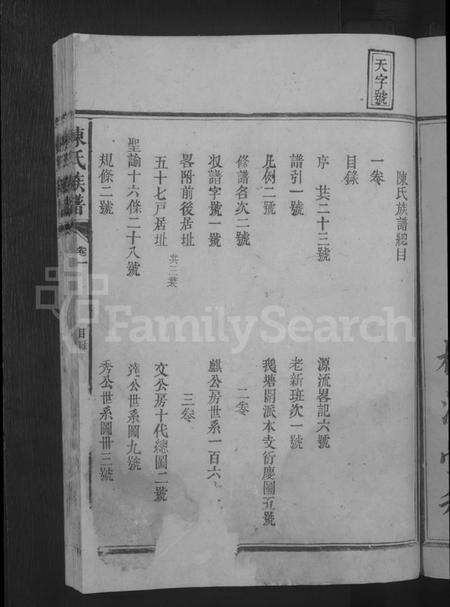 天字號
陳氏族譜總目
一卷
目錄
序 共二十三號
源流畧記六號
譜引一號
老新班次一號
凡例二號
我塘開派本支衍慶圖五號
修譜名次二號
二卷
派譜字號一號
麒公房世系一百六
畧附前後居址
三卷
五十七戸居址 共三葉
文公房十代總圖二號
聖諭十六條二十八號
公世系圖九號
規條二號
秀公世系圖卅三號
陳氏族譜
卷一
目錄
FamilySearch